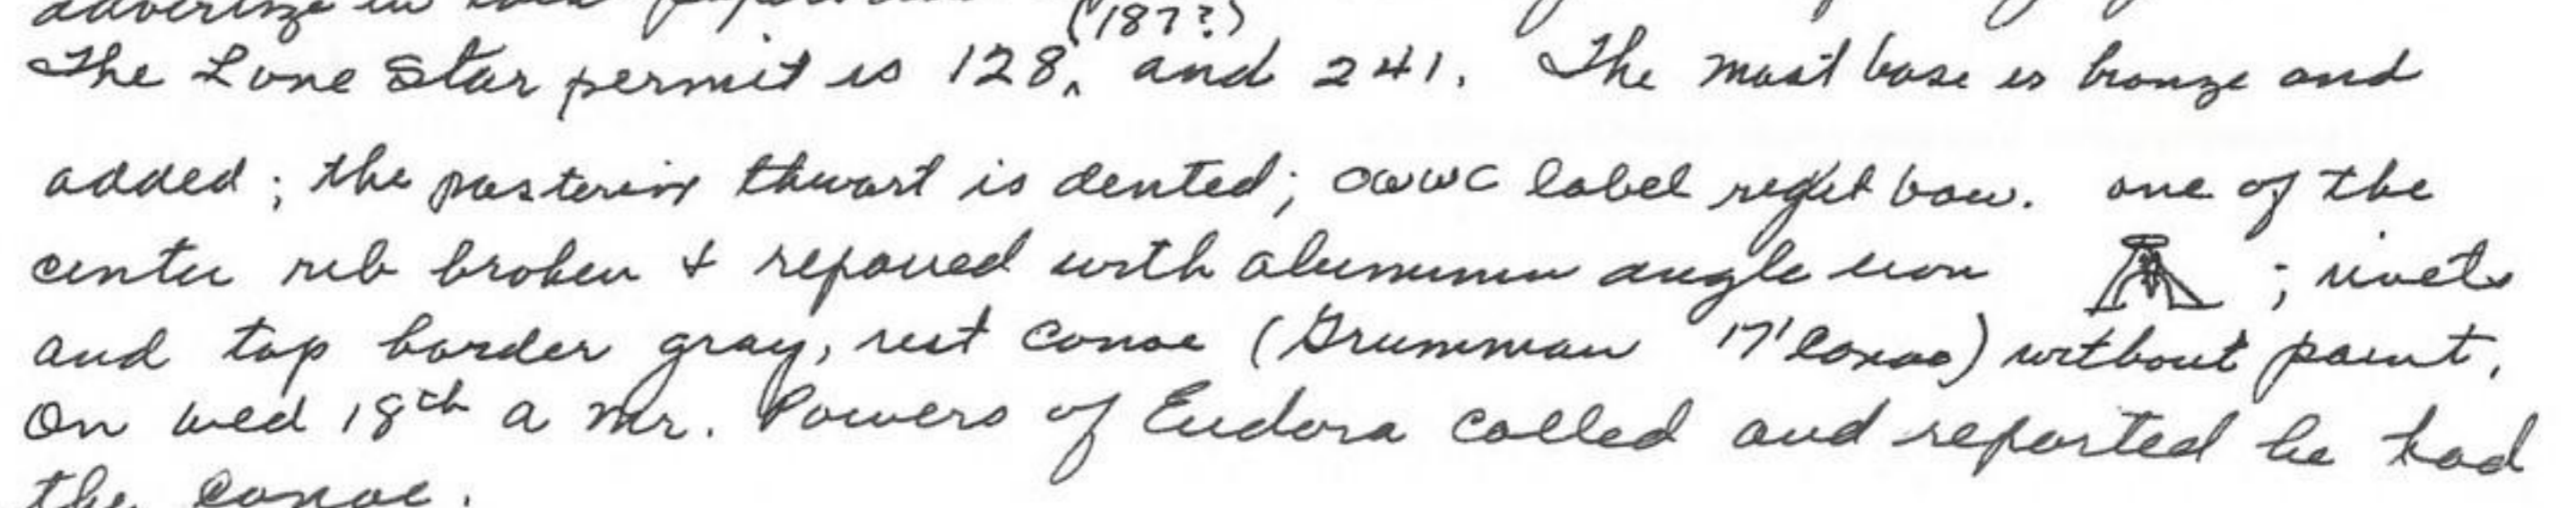 advertize in
(187?)
The Lone Star permit is 128‸ and 241. The mast base is bronze and
added; the posterior thwart is dented; OWWC label right bow. one of the
center rib broken & repaired with aluminum angle iron ; rivets
and top border gray, rest canoe (Grumman 17' Canoe) without paint.
On wed 18th a Mr. Powers of Eudora called and reported he had
the canoe.